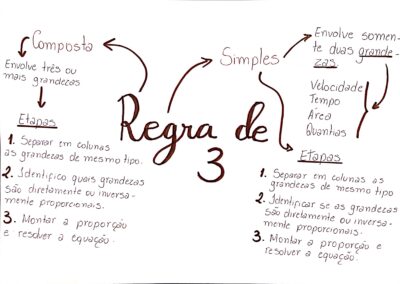 Regra de
3
Composta
Envolve três ou
mais grandezas
Etapas
1. Separar em colunas
as grandezas de mesmo tipo.
2. Identifico quais grandezas
são diretamente ou inversa-
mente proporcionais.
3. Montar a proporção
e resolver a equação.
Simples
Envolve somen-
te duas grande-
zas
Velocidade
Tempo
Área
Quantias
Etapas
1. Separar em colunas as
grandezas de mesmo tipo
2. Identificar se as grandezas
são diretamente ou inversa-
mente proporcionais.
3. Montar a proporção e
resolver a equação.